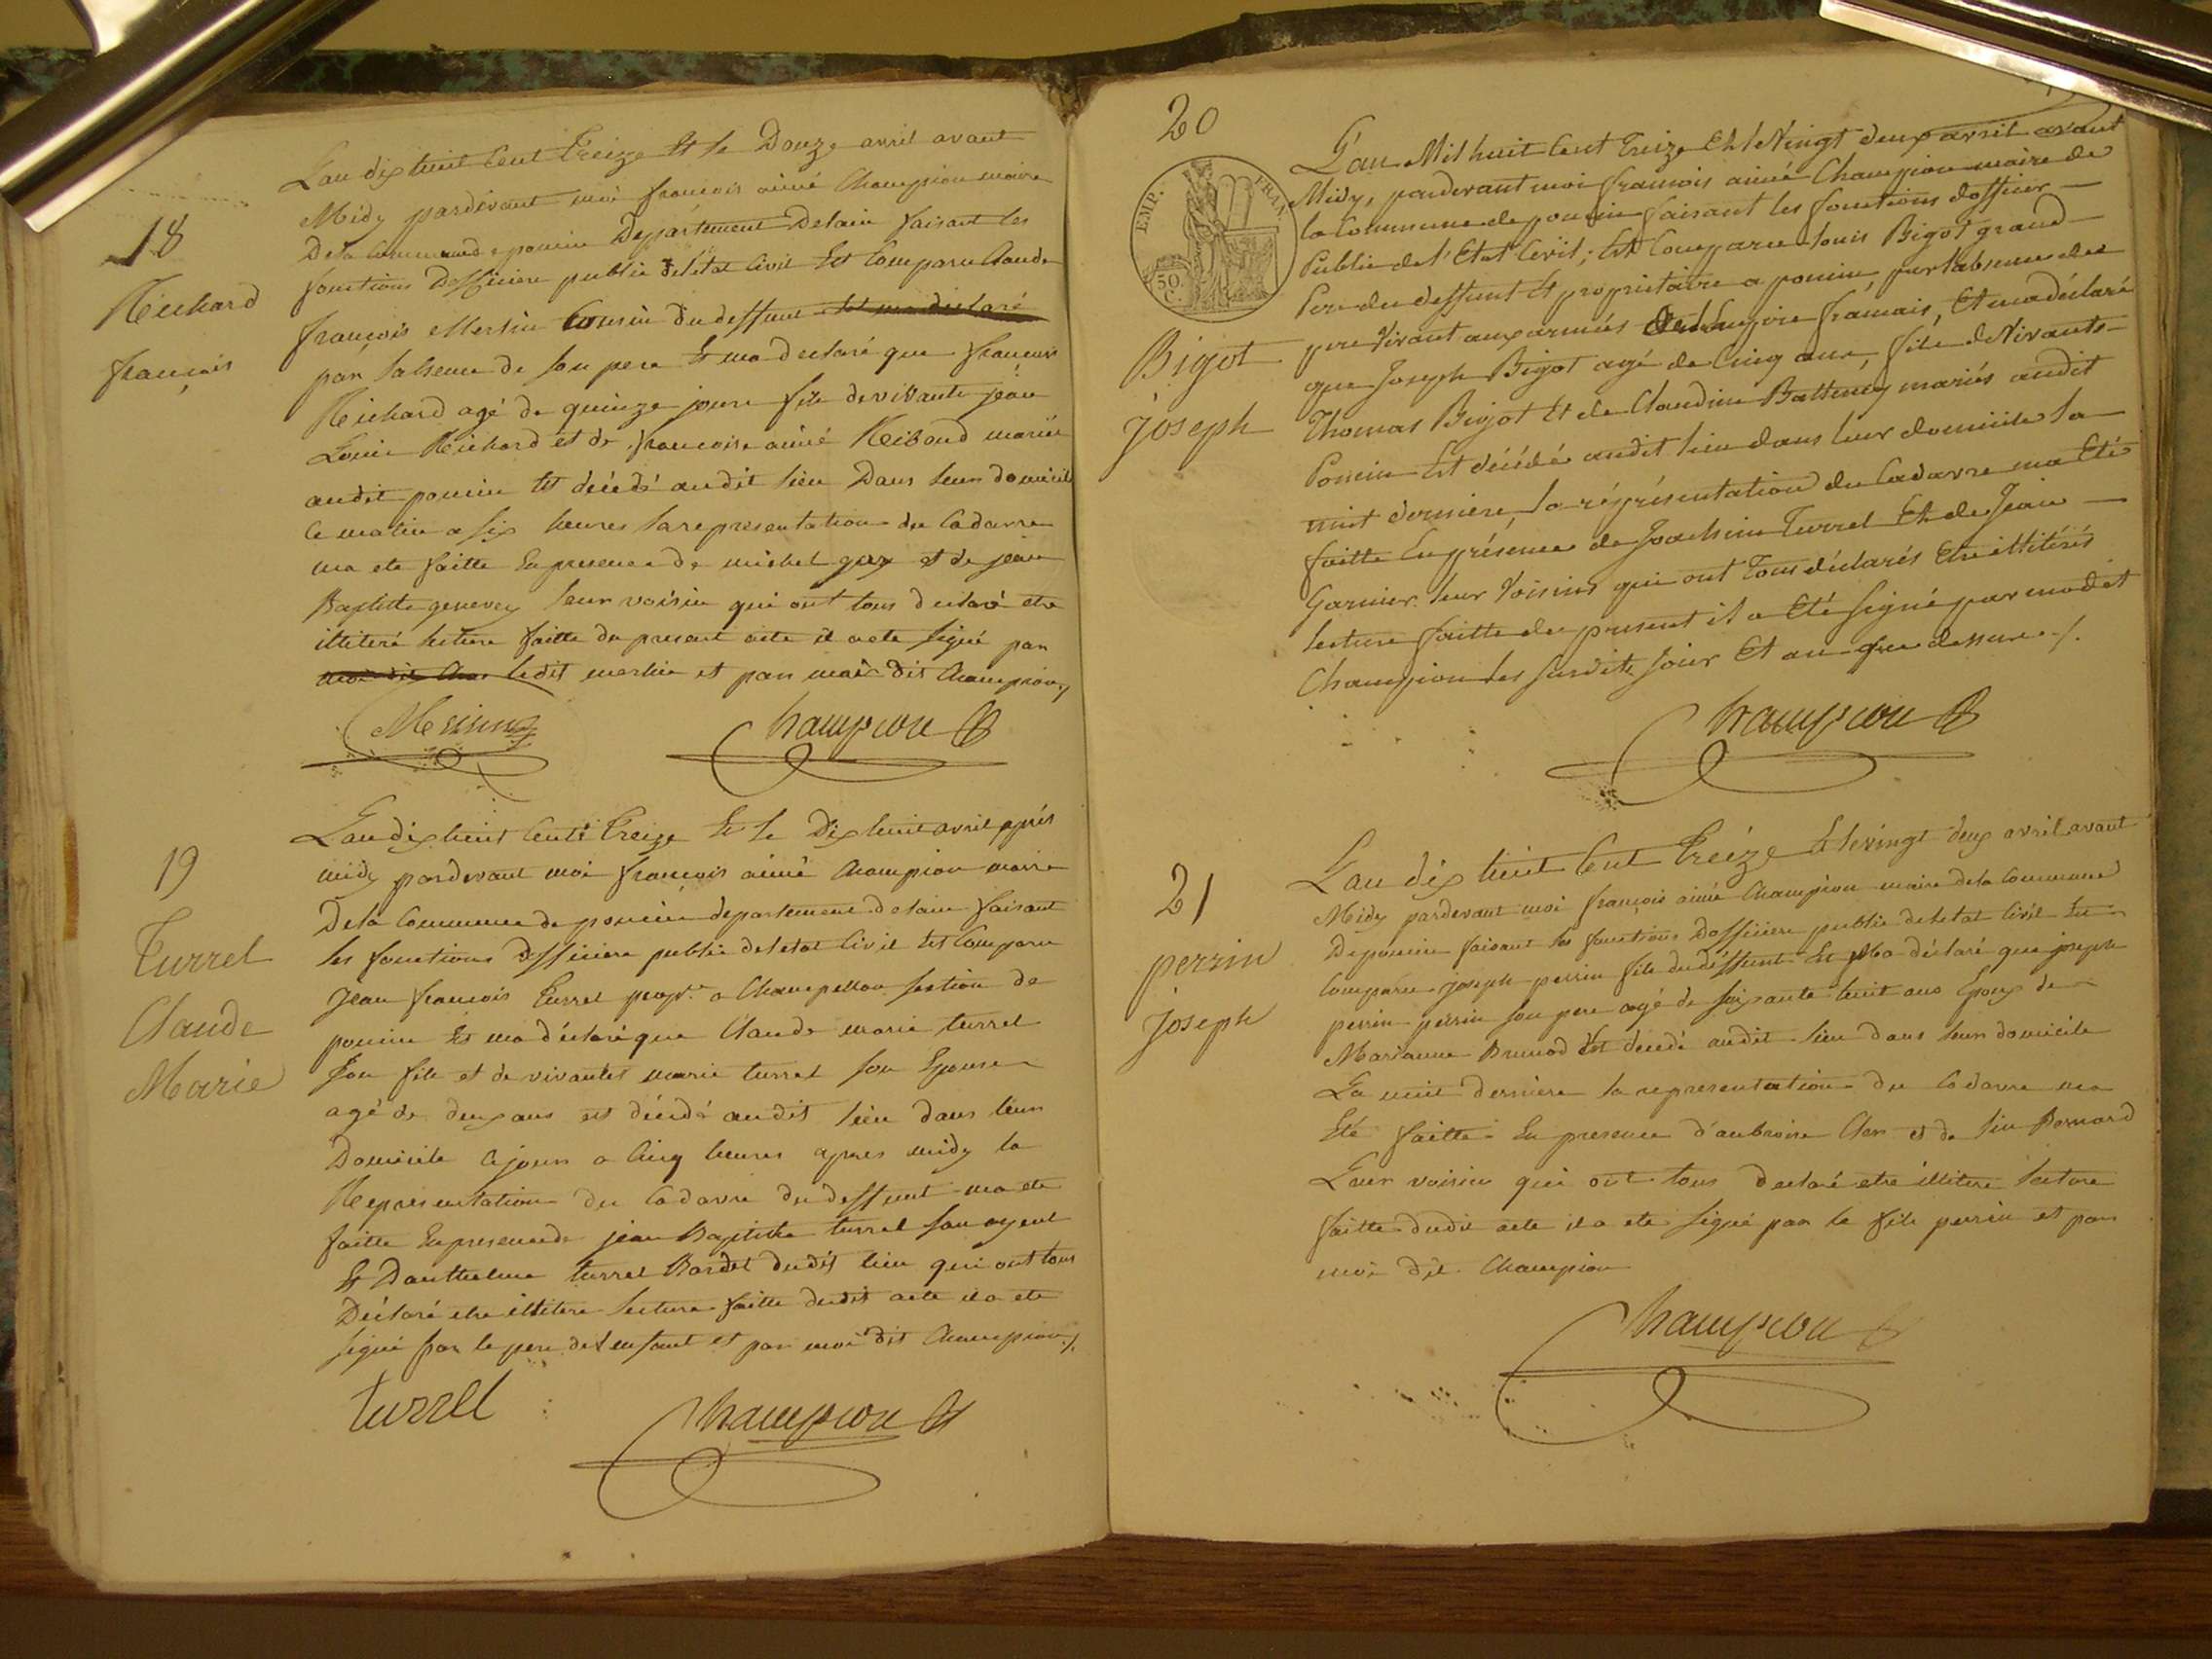 18
Richard
françois
Lan dix huit Cent Treize Et le Douze avril avant
Midy pardevant moi françois aimé Champion maire
Dela Commune de poncin Departement Delain faisant les
fonctions Dofficiere public deletat Civil Est Comparu Claude
françois Merlin Cousin du deffunt Et ma declaré
par labsence de son pere Et ma declaré que françois
Richard agé de quinze jours fils de vivants jean
Louis Richard et de françoise aimé Reiboud mariés
audit poncin Est décédé audit lieu Dans leur domicil
ce matin a six heures la representation du Cadavre
ma ete faitte En presence de michel guy et de jean
Baptiste genevey leur voisin qui ont tous declaré etre
illiteré lecture faitte du present acte il a ete signé par
moi dit Cham ledit merlin et par moi dit Champion
Merlin Champion
19
Turrel
Claude
Marie
Lan dix huit Cent Treize Et le Dix huit avril après
midy pardevant moi françois aimé Champion maire
Dela Commune de poncin departement delain faisant
les fonctions dofficiere public deletat Civil Est Comparu
Jean françois Turrel propre a Champellon section de
poncin Et ma déclaré que Claude marie turrel
Son fils et de vivantes marie turrel son Epouse
agé de deux ans est décédé audit lieu dans leur
Domicile ce jour a Cinq heures apres midy la
Representation du Cadavre du deffunt ma ete
faitte En presence de jean Baptiste turrel son ayeul
Et Danthelme turrel Bardet dudit lieu qui ont tous
Déclaré etre illitere lecture faitte dudit acte il a ete
signé par le pere delenfant et par moi dit Champion
turrel Champion
20
EMP. FRAN.
50
C.
Bigot
joseph
L'an Mil huit Cent Treize Et le Vingt deux avril avant
Midy, pardevant moi françois aimé Champion maire de
la Commune de poncin faisant les fonctions dofficier
Public de l'Etat Civil; Est Comparu Louis Bigot grand
Pere du deffunt Et propriétaire a poncin par labsence du
pere Vivant aux armées de lEmpire français, Et ma déclaré
que Joseph Bigot agé de Cinq ans, fils de Vivants
Thomas Bigot Et de Claudine Batteney mariés audit
Poncin Est décédé audit lieu dans leur domicile la
nuit dernière, la réprésentation du Cadavre ma Eté
faitte En présence de Joachim Turrel Et de Jean
Garnier leur Voisins qui ont Tous déclarés Etre illitérés
lecture faitte du present il a Eté signé par moi dit
Champion les susdits jour Et an que dessus ./.
Champion
21
perrin
joseph
L'an dix huit Cent Treize Et le vingt deux avril avant
Midy pardevant moi françois aimé Champion maire dela Commune
De poncin faisant les fonctions Dofficiere public deletat Civil Est
Comparu joseph perrin fils du deffunt Et Ma déclaré que joseph
perrin perrin son pere agé de soixante huit ans Epoux de
Marianne Brunod Est décedé audit lieu dans leur domicile
La nuit derniere la representation du Cadavre ma
Eté faitte En presence d'ambroise Cler et de Bernard
Leur voisin qui ont tous declaré etre illitere lecture
faitte dudit acte il a ete signé par le fils perrin et par
moi dit Champion
Champion